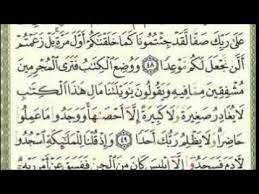 عَلَىٰ رَبِّكَ صَفًّا لَّقَدْ جِئْتُمُونَا كَمَا خَلَقْنَٰكُمْ أَوَّلَ مَرَّةٍۭ بَلْ زَعَمْتُمْ
أَلَّن نَّجْعَلَ لَكُم مَّوْعِدًا ٤٨ وَوُضِعَ ٱلْكِتَٰبُ فَتَرَى ٱلْمُجْرِمِينَ
مُشْفِقِينَ مِمَّا فِيهِ وَيَقُولُونَ يَٰوَيْلَتَنَا مَالِ هَٰذَا ٱلْكِتَٰبِ
لَا يُغَادِرُ صَغِيرَةً وَلَا كَبِيرَةً إِلَّآ أَحْصَىٰهَا وَوَجَدُوا۟ مَا عَمِلُوا۟
حَاضِرًا وَلَا يَظْلِمُ رَبُّكَ أَحَدًا ٤٩ وَإِذْ قُلْنَا لِلْمَلَٰٓئِكَةِ ٱسْجُدُوا۟
لِءَادَمَ فَسَجَدُوٓا۟ إِلَّآ إِبْلِيسَ كَانَ مِنَ ٱلْجِنِّ فَفَسَقَ عَنْ أَمْرِ رَبِّهِۦٓ